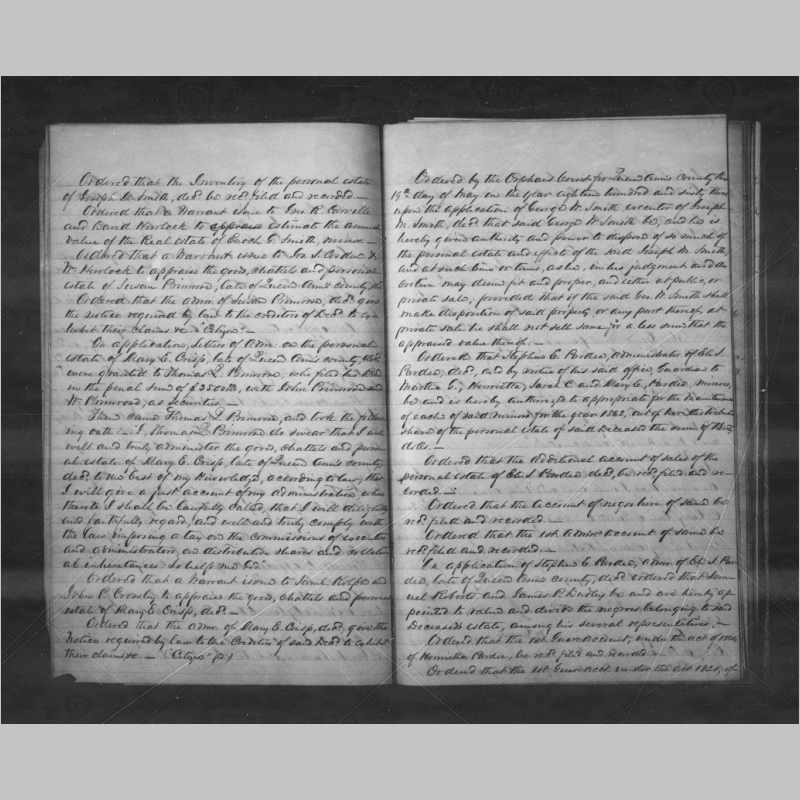 Ordered that the Inventory of the personal estate
of Joseph M. Smith, decd. be recd. filed and recorded.—
Ordered that a Warrant issue to
and David Warlock to appraise estimate the annual
value of the Real estate of Smith, minor.—
Ordered that a warrant issue to &
W. Hurlock to appraise the goods, chattels and personal
estate of Susan Primrose, late of Queen Ann's county,
Ordered that the admr. of Susan Primrose, decd. give
the notice required by law to the creditors of Decd. to ex-
hibit their claims &c. "Citizen".—
On application, letters of Adm. on the personal
estate of Mary E. Crisp, late of Queen Ann's county, decd.
were granted to Thomas L. Primrose, who filed his Bond
in the penal sum of with John Primrose and
W. Primrose, as securities.—
Then came Thomas L. Primrose, and took the follow-
ing oath—I, Thomas L. Primrose do swear that I will
well and truly administer the goods, chattels and person-
al estate of Mary E. Crisp, late of Queen Ann's county
decd. to the best of my knowledge, according to law; that
I will give a just account of my administration when
thereto I shall be lawfully called, that I will diligently
and faithfully regard, and well and truly comply with
the law imposing a tax on the commissions of executors
and administrators, on distributive shares and collater-
al inheritances so help me God.
Ordered that a warrant issue to Saml. Rolph and
John P. to appraise the goods, chattels and personal
estate of Mary E. Crisp, decd.—
Ordered that the admr. of Mary E. Crisp, decd. give the
notice required by law to the Creditors of said Decd. to exhibit
their claims &c.— "Citizen"
Ordered by the Orphans Court for Queen Ann's county this
19th day of May in the year eighteen hundred and sixty three
upon the application of George W. Smith executor of Joseph
M. Smith, decd. that said George W. Smith be, and he is
hereby given authority and power to dispose of so much of
the personal estate and effects of the said Joseph M. Smith,
and at such time or times, as he, in his judgment and dis-
cretion may deem fit and proper, and either at public, or
private sale; provided that if the said Geo. W. Smith shall
make disposition of said property or any part thereof, at
private sale he shall not sell same for a less sum than the
appraised value thereof.—
Ordered that Stephen C. Pardee, administrator of Eli S.
Pardee, decd. and by virtue of his said office, Guardian to
Martha E., Henrietta, Sarah C. and Mary E. Pardee, minors,
be and is hereby authorized to appropriate for the maintenance
of each of said minors for the year 1862, out of their distributive
share of the personal estate of said Deceased the sum of
dolls.—
Ordered that the additional account of sales of the
personal estate of Eli S. Pardee, decd. be recd. filed and re-
corded.—
Ordered that the account of negro hire of same be
recd. filed and recorded.—
Ordered that the 1st Admr. account of same be
recd. filed and recorded.—
On application of Stephen C. Pardee, admr. of Eli S. Par-
dee, late of Queen Ann's county, decd. ordered that Sam-
uel Roberts and James P. Dudley be and are hereby ap-
pointed to value and divide the negroes belonging to said
Deceased's estate, among his several representatives.—
Ordered that the 1st Guar. account, under the act of 1831,
of Henrietta Pardee, be recd. filed and recorded.—
Ordered that the 1st Guar. acct. under the act 1831, of